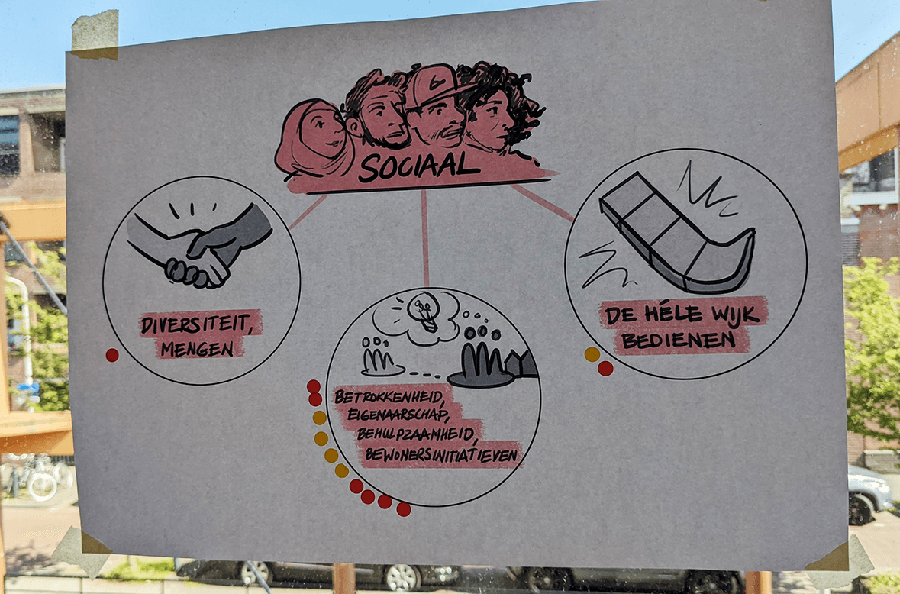 SOCIAAL
DIVERSITEIT,
MENGEN
BETROKKENHEID,
EIGENAARSCHAP,
BEHULPZAAMHEID,
BEWONERSINITIATIEVEN
DE HÉLE WIJK
BEDIENEN